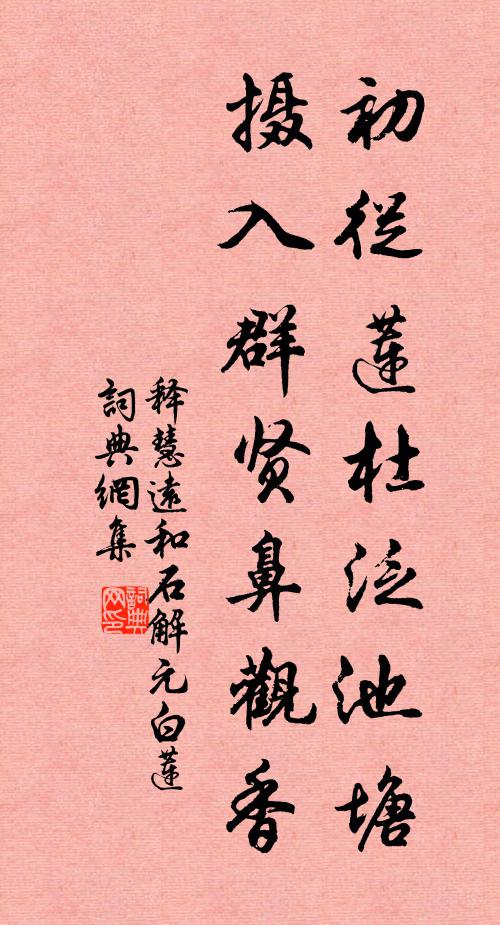 初從蓮杜泛池塘
摄入群贤鼻觀香
释慧遠和石解元白蓮
詞典網集
詞典网印